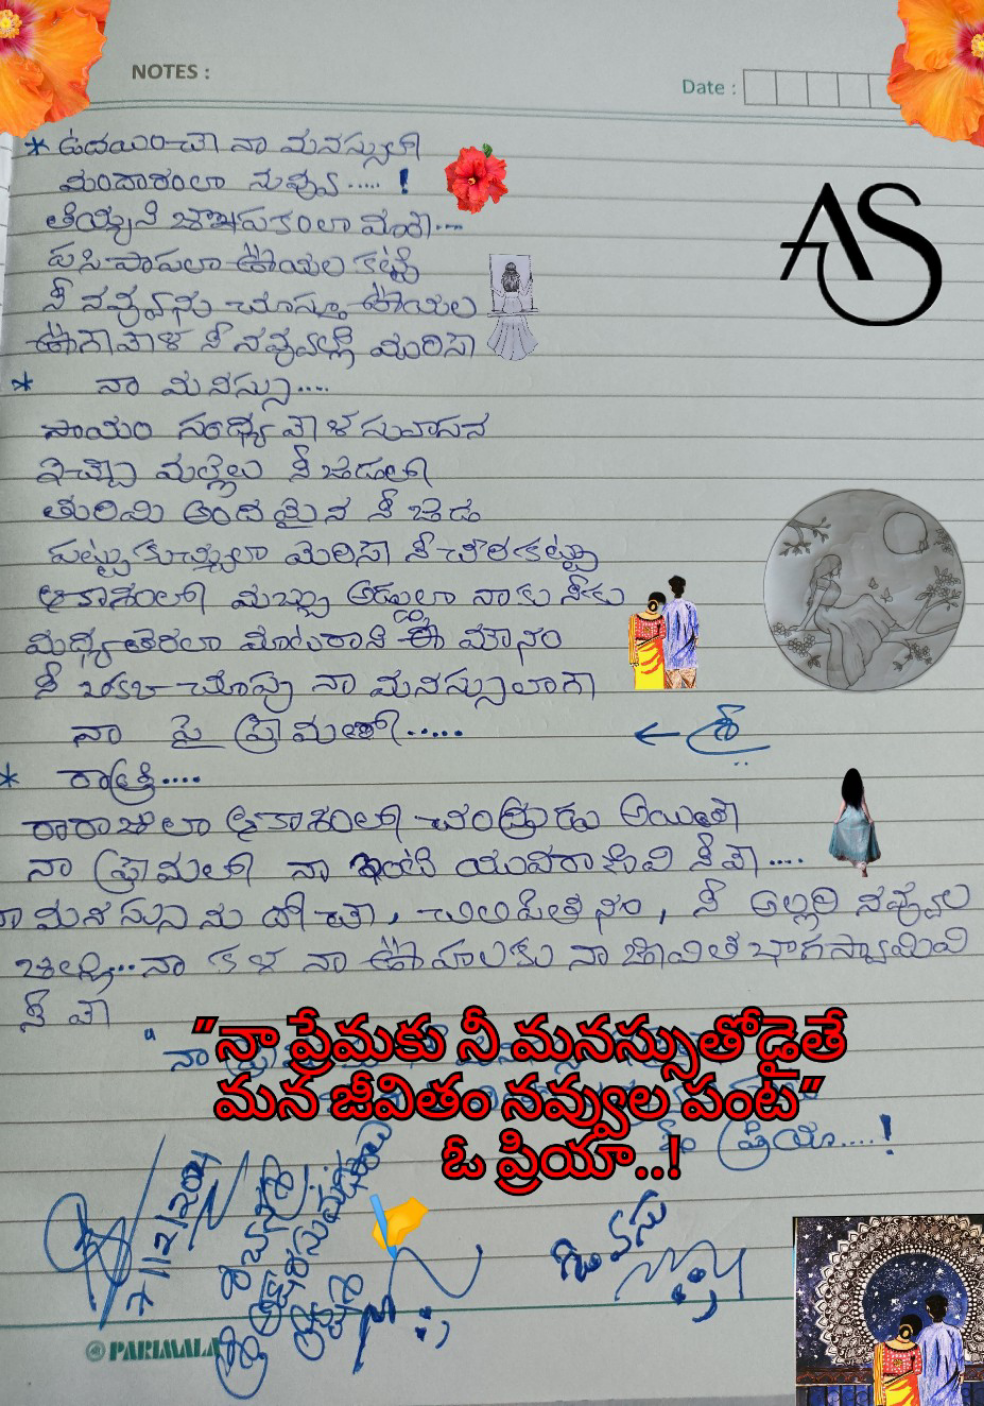 NOTES :
Date :
* ఉదయించే నా మనస్సులో
మందారంలా నువ్వు..... !
తియ్యని జ్ఞాపకంలా మారి...
పసిపాపలా ఊయల కట్టి
నీ నవ్వును చూస్తూ ఊయల
ఊగేవేళ నీ నవ్వుల్లో మురిసే
* నా మనస్సు....
సాయం సంధ్య వేళ సువాసన
ఇచ్చే మల్లెలు నీ జెడలో
తురిమి అందమైన నీ జెడ
పట్టుకుచ్చులా మెరిసే నీ చీరకట్టు
ఆకాశంలో మబ్బు అడ్డులా నాకు నీకు
మధ్య తెరలా మాటరాని ఈ మౌనం
నీ ఒకచూపు నా మనస్సులాగా
నా పై ప్రేమతో.....
← శ్రీ
* రాత్రి....
రారాజులా ఆకాశంలో చంద్రుడు అయితే
నా ప్రేమలో నా ఇంటి యువరాణివి నీవే....
నా మనసును దోచే, చిలిపితనం, నీ అల్లరి నవ్వుల
జల్లు... నా కళ నా ఊహలకు నా జీవిత భాగస్వామివి
నీ వే
"నా ప్రేమకు నీ మనస్సుతోడైతే
మన జీవితం నవ్వుల పంట"
ఓ ప్రియా..!
ఓ ప్రియా....!
AS
PARIMALA